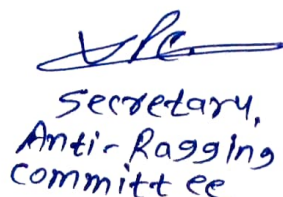 Secretary,
Anti-Ragging
committee